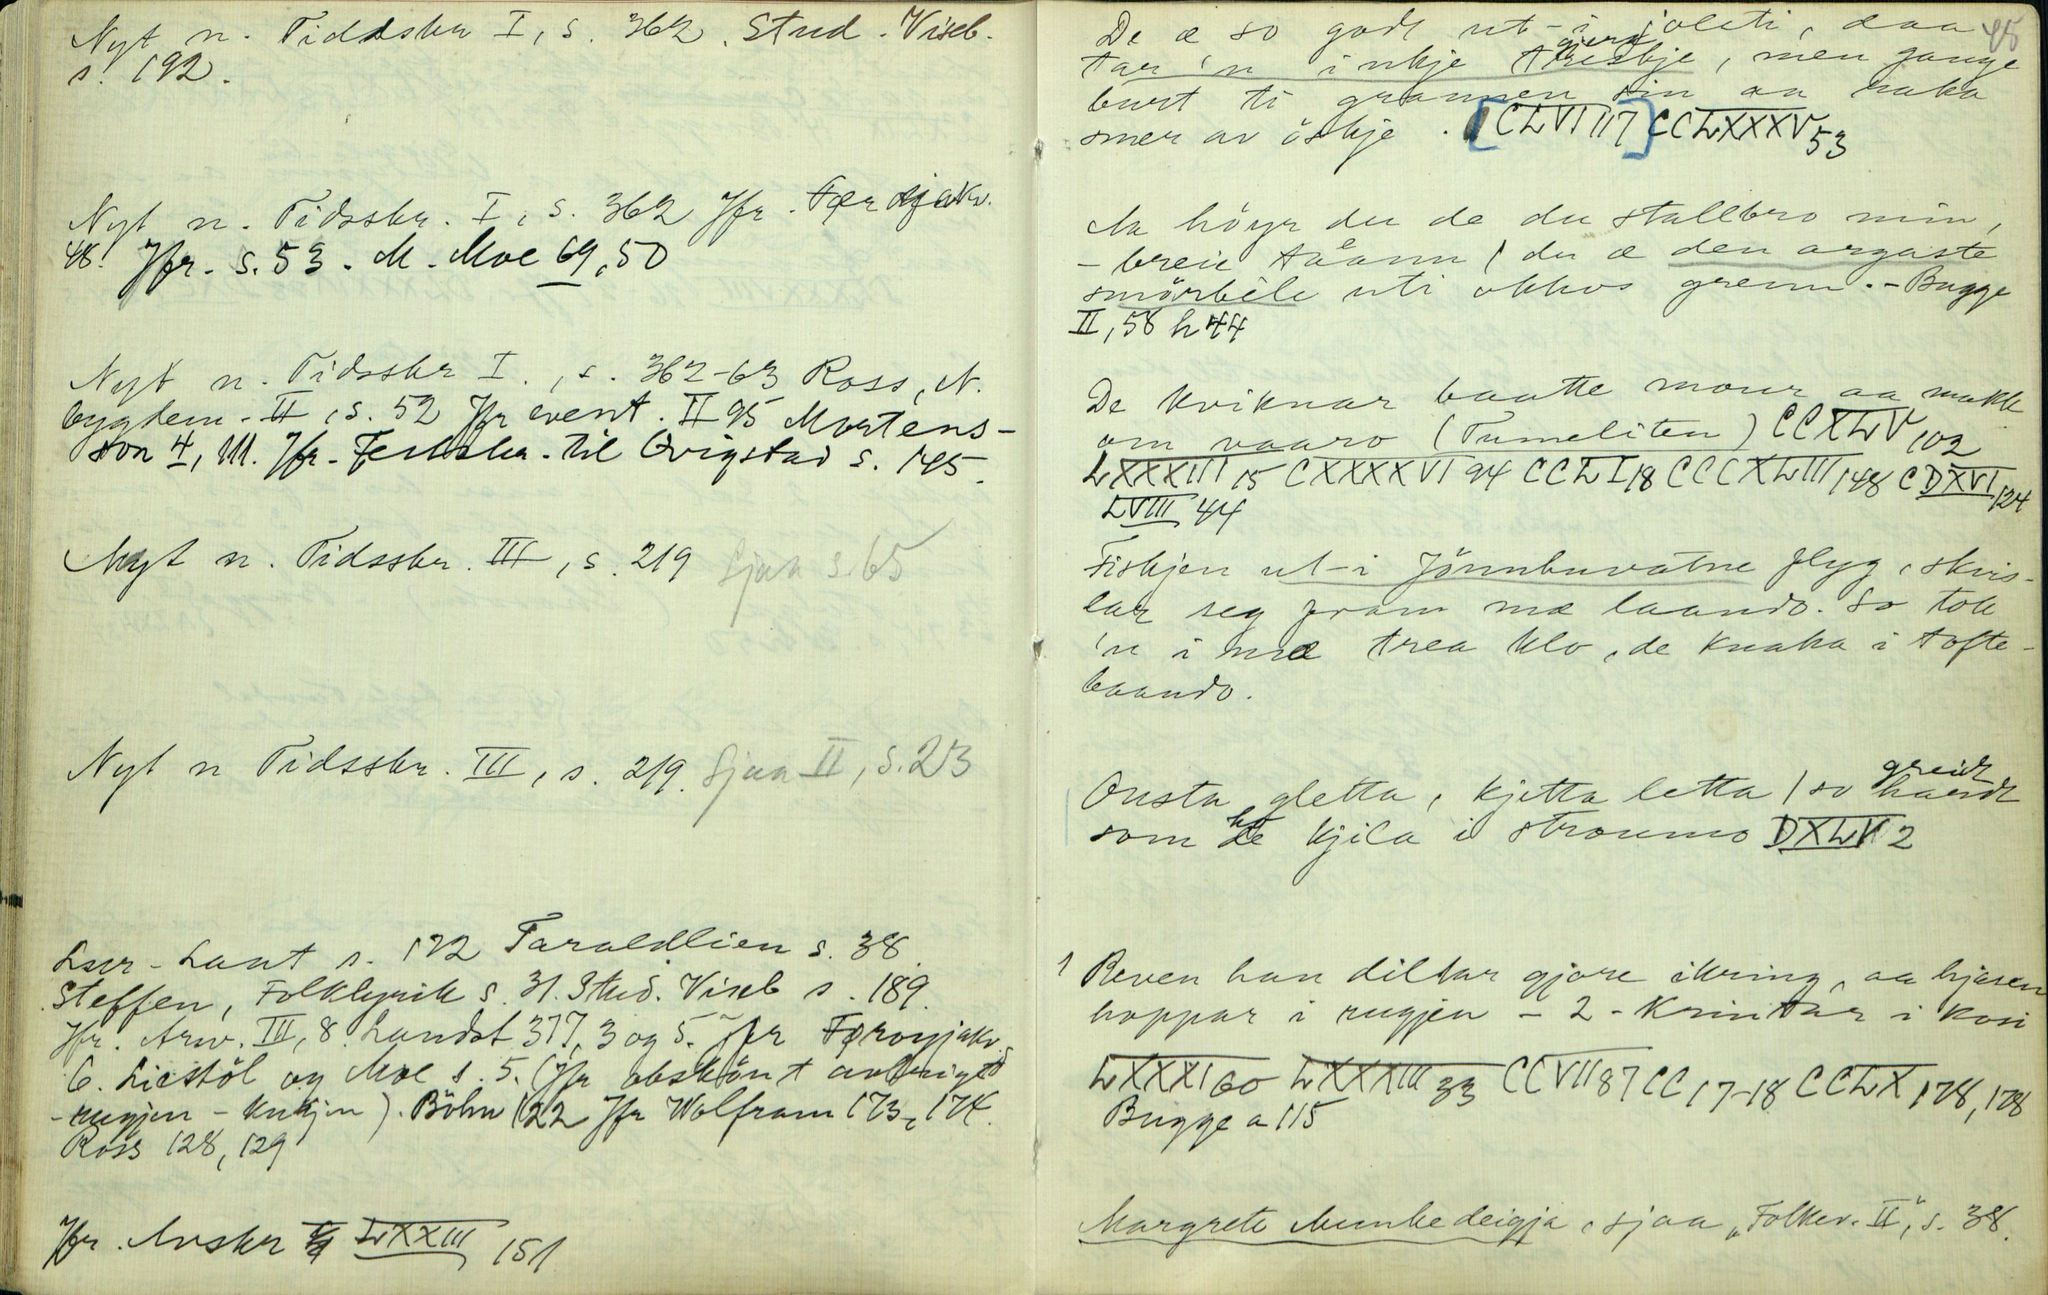 Nyt n. Tidsskr I, s. 362. Stud. Viseb.
s. 192.
Nyt n. Tidsskr. I, s. 362 Jfr.
48. Jfr. s. 53. M. Moe 69, 50
Nyt n. Tidsskr I., s. 362-63 Ross, N.
bygdem. II, s. 52 Jfr event. II 95 Mortens-
son 4, 111. Jfr. Festskr. til Qvigstad s. 145.
Nyt n. Tidsskr. III, s. 219 Sjaa s. 65
Nyt n Tidsskr. III, s. 219. Sjaa II, s. 23
Laur-Laut s. 172 Taraldlien s. 38.
Steffen, Folklyrik s. 31. Stud. Viseb s. 189.
Jfr. Arw. III, 8. Landst. 377, 3 og 5. Jfr Færoyjakv.
6. Liestöl og Moe s. 5. (Jfr obskönt
-rugjen - ). Böhm 122 Jfr Wolfram 173-174.
Ross 128, 129
Jfr. Avskr LXXIII 151
45
De æ so godt ut-i joleti, daa
tar 'n inkje , men gange
burt ti grannen sin aa raka
smer av öskje. [CLVI 117] CCLXXXV 53
Aa höyr du de du stallbro min,
- breie tåann / du æ den argaste
smörbèle uti okkos grenn. - Bugge
II, 58 h 44
De kviknar baatte mour aa makk
om vaaro (Tumeliten) CCXLV 102
LXXXIII 15 CXXXXVI 94 CCLI 18 CCCXLIII 148 CDXVI 124
LVIII 44
Fiskjen ut-i Jönnbuvatne flyg, skris-
lar seg fram mæ laando. So tok
'n i mæ trea klo, de knaka i tofte-
baando.
greidt
Ousta gletta, kjetta letta / so
som kjila i stroumo DXLV 2
1 Reven han diltar gjøre ikring, aa hjasen
hoppar i rugjen - 2 - Krintar i kosi
LXXXI 60 LXXXIII 33 CCVII 87 CC 17-18 CCLX 178, 178
Bugge a 115
Margrete Munkedeigja, sjaa "Folkev. II", s. 38.